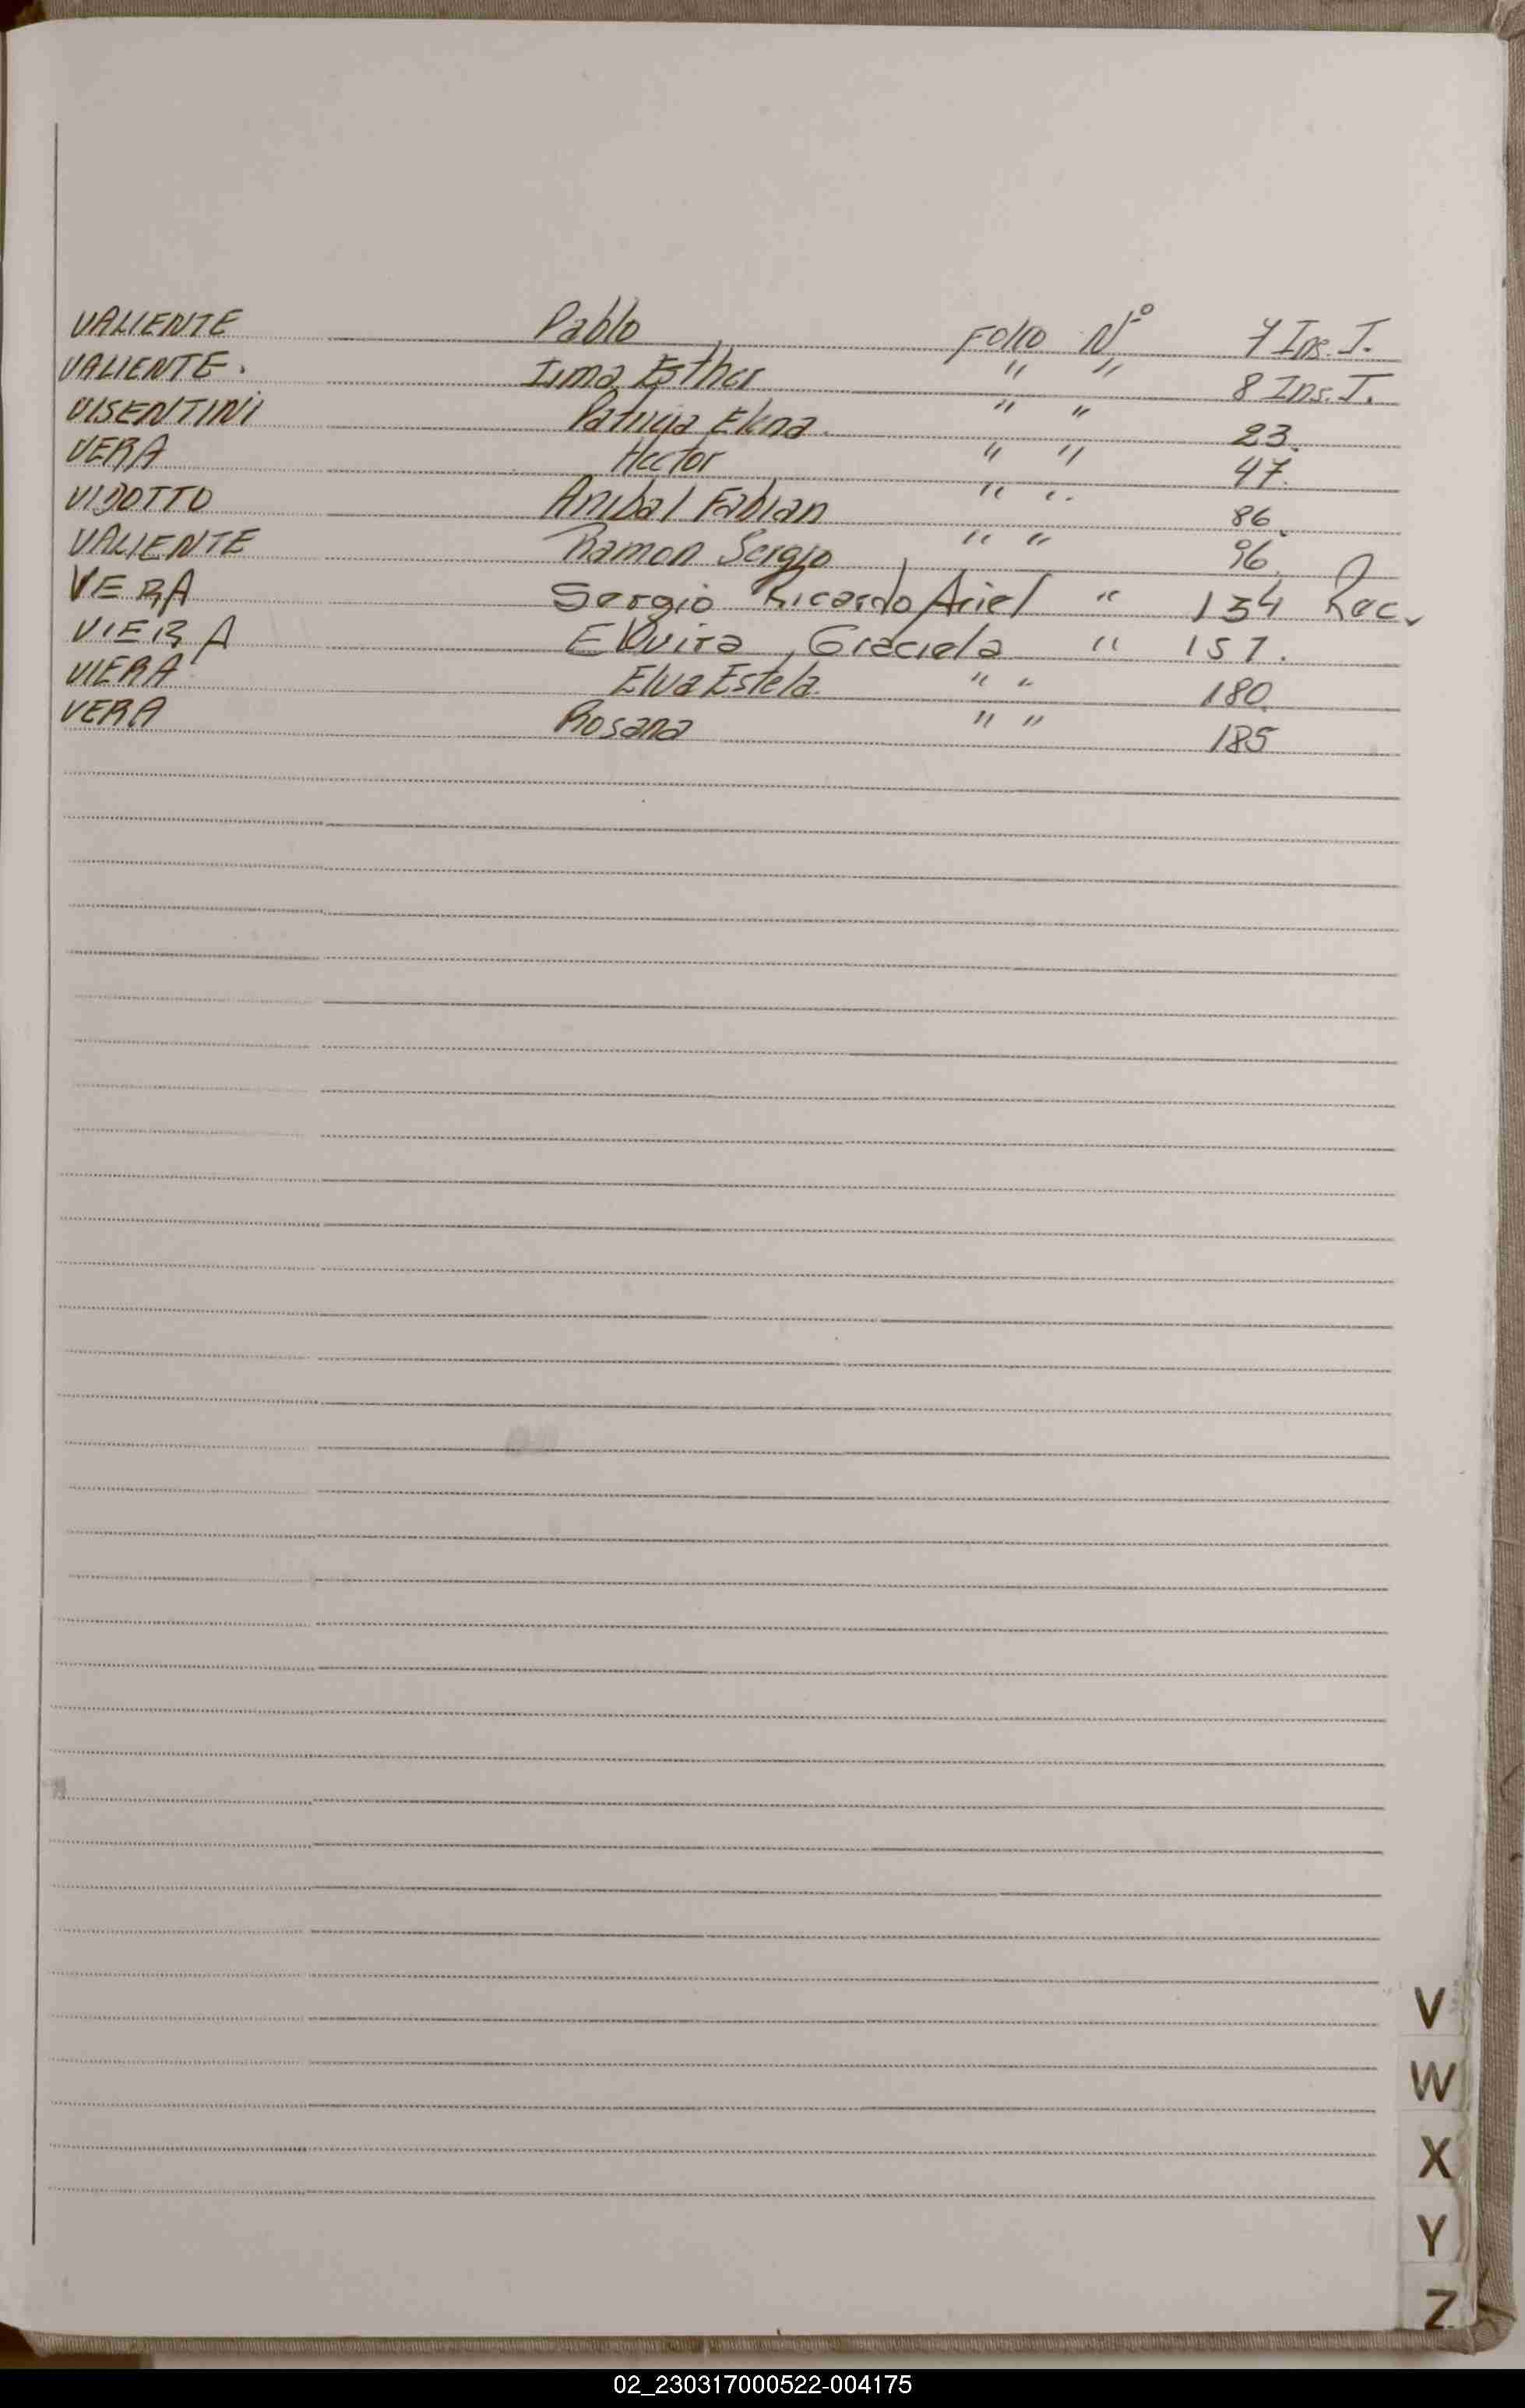 VALIENTE Pablo Folio Nº 7 Ins. J.
VALIENTE. Irma Esther " " 8 Ins. J.
VISENTINI Patricia Elena. " " 23.
VERA Hector " " 47.
VIDOTTO Anibal Fabian " " 86.
VALIENTE Ramon Sergio " " 96.
VERA Sergio Ricardo Ariel " 134 Rec.
VIERA Elvira, Graciela " 157.
VIERA Elva Estela. " " 180.
VERA Rosana " " 185
V
W
X
Y
Z
02_230317000522-004175